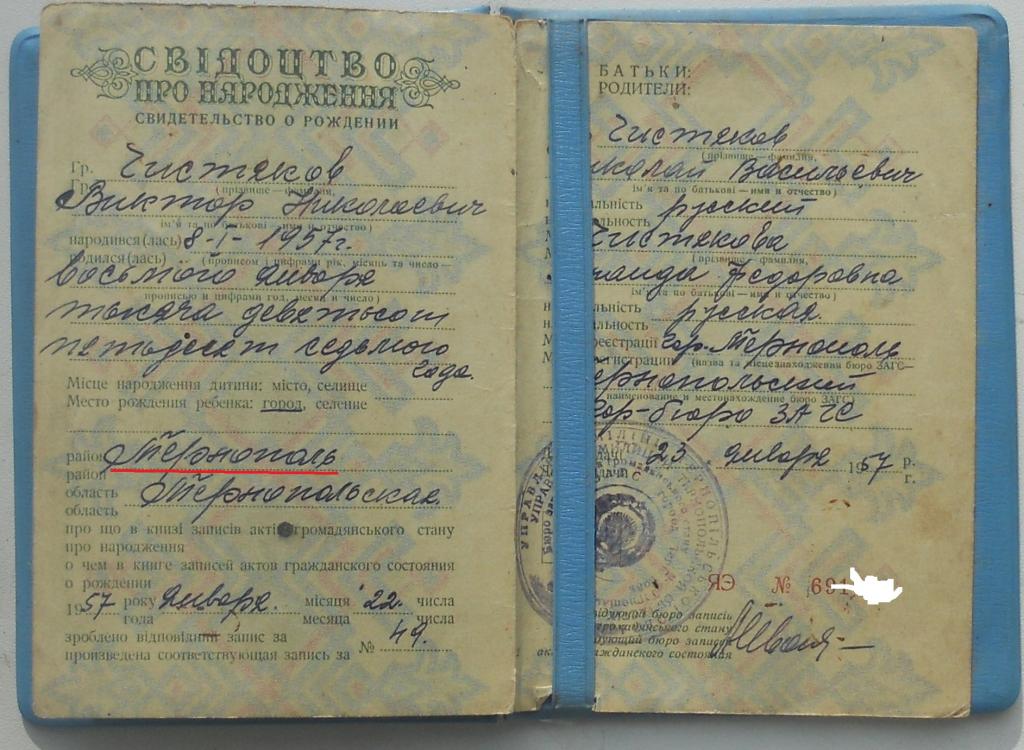 СВІДОЦТВО
ПРО НАРОДЖЕННЯ
СВИДЕТЕЛЬСТВО О РОЖДЕНИИ
Гр. Чистяков
Гр. (прізвище — фамилия,
Виктор Николаевич
ім'я та по батькові — имя и отчество)
народився(лась) 8-I- 1957г.
родился(лась) (прописом і цифрами рік, місяць та число —
восьмого января
прописью и цифрами год, месяц и число)
тысяча девятьсот
пятьдесят седьмого
года.
Місце народження дитини: місто, селище
Место рождения ребенка: город, селение
район Тернополь
район
область Тернопольская
область
про що в книзі записів актів громадянського стану
про народження
о чем в книге записей актов гражданского состояния
о рождении
1957 року января. місяця 22. числа
года месяца числа
зроблено відповідний запис за
произведена соответствующая запись за № 49.
БАТЬКИ:
РОДИТЕЛИ:
Чистяков
(прізвище — фамилия,
иколай Васильевич
ім'я та по батькові — имя и отчество)
альність русский
альность
Чистякова
(прізвище — фамилия,
Федоровна
ім'я та по батькові — имя и отчество)
льність русская.
альность
реєстрації гор. Тернополь
егистрации (назва та місцезнаходження бюро ЗАГС—
ернопольский
наименование и местонахождение бюро ЗАГС)
гор-бюро ЗАГС
23 января 1957 р.
г.
ЯЭ № 691
ідуючий бюро записів
громадянського стану
ующий бюро записей
гражданского состояния